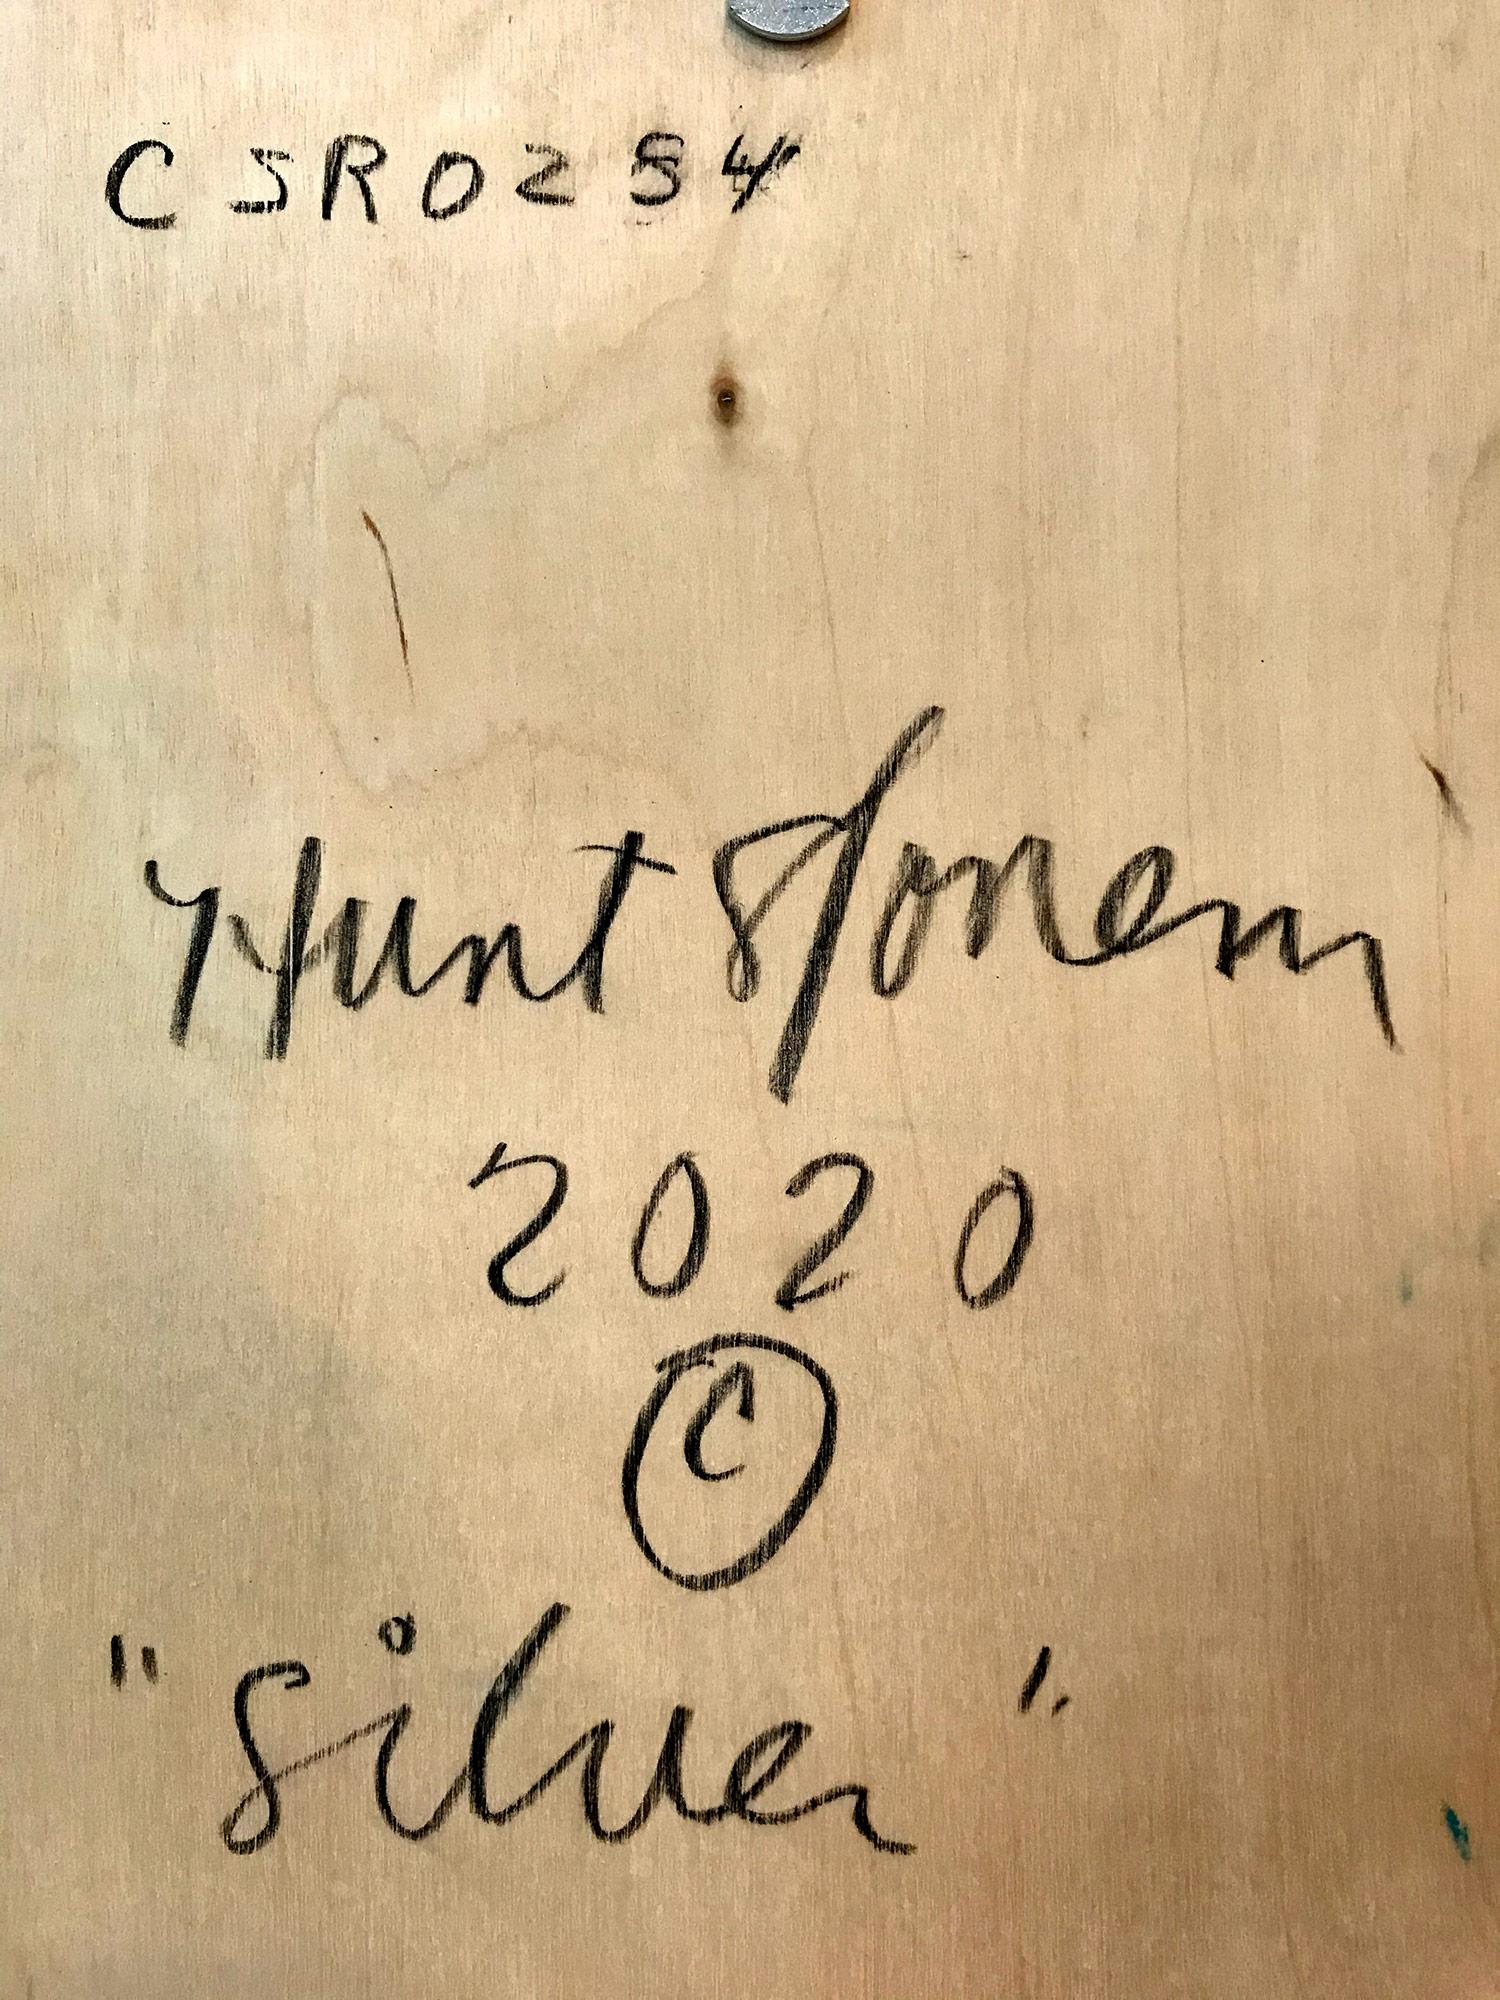 CSR0254
Hunt Slonem
2020
©
"Silver"